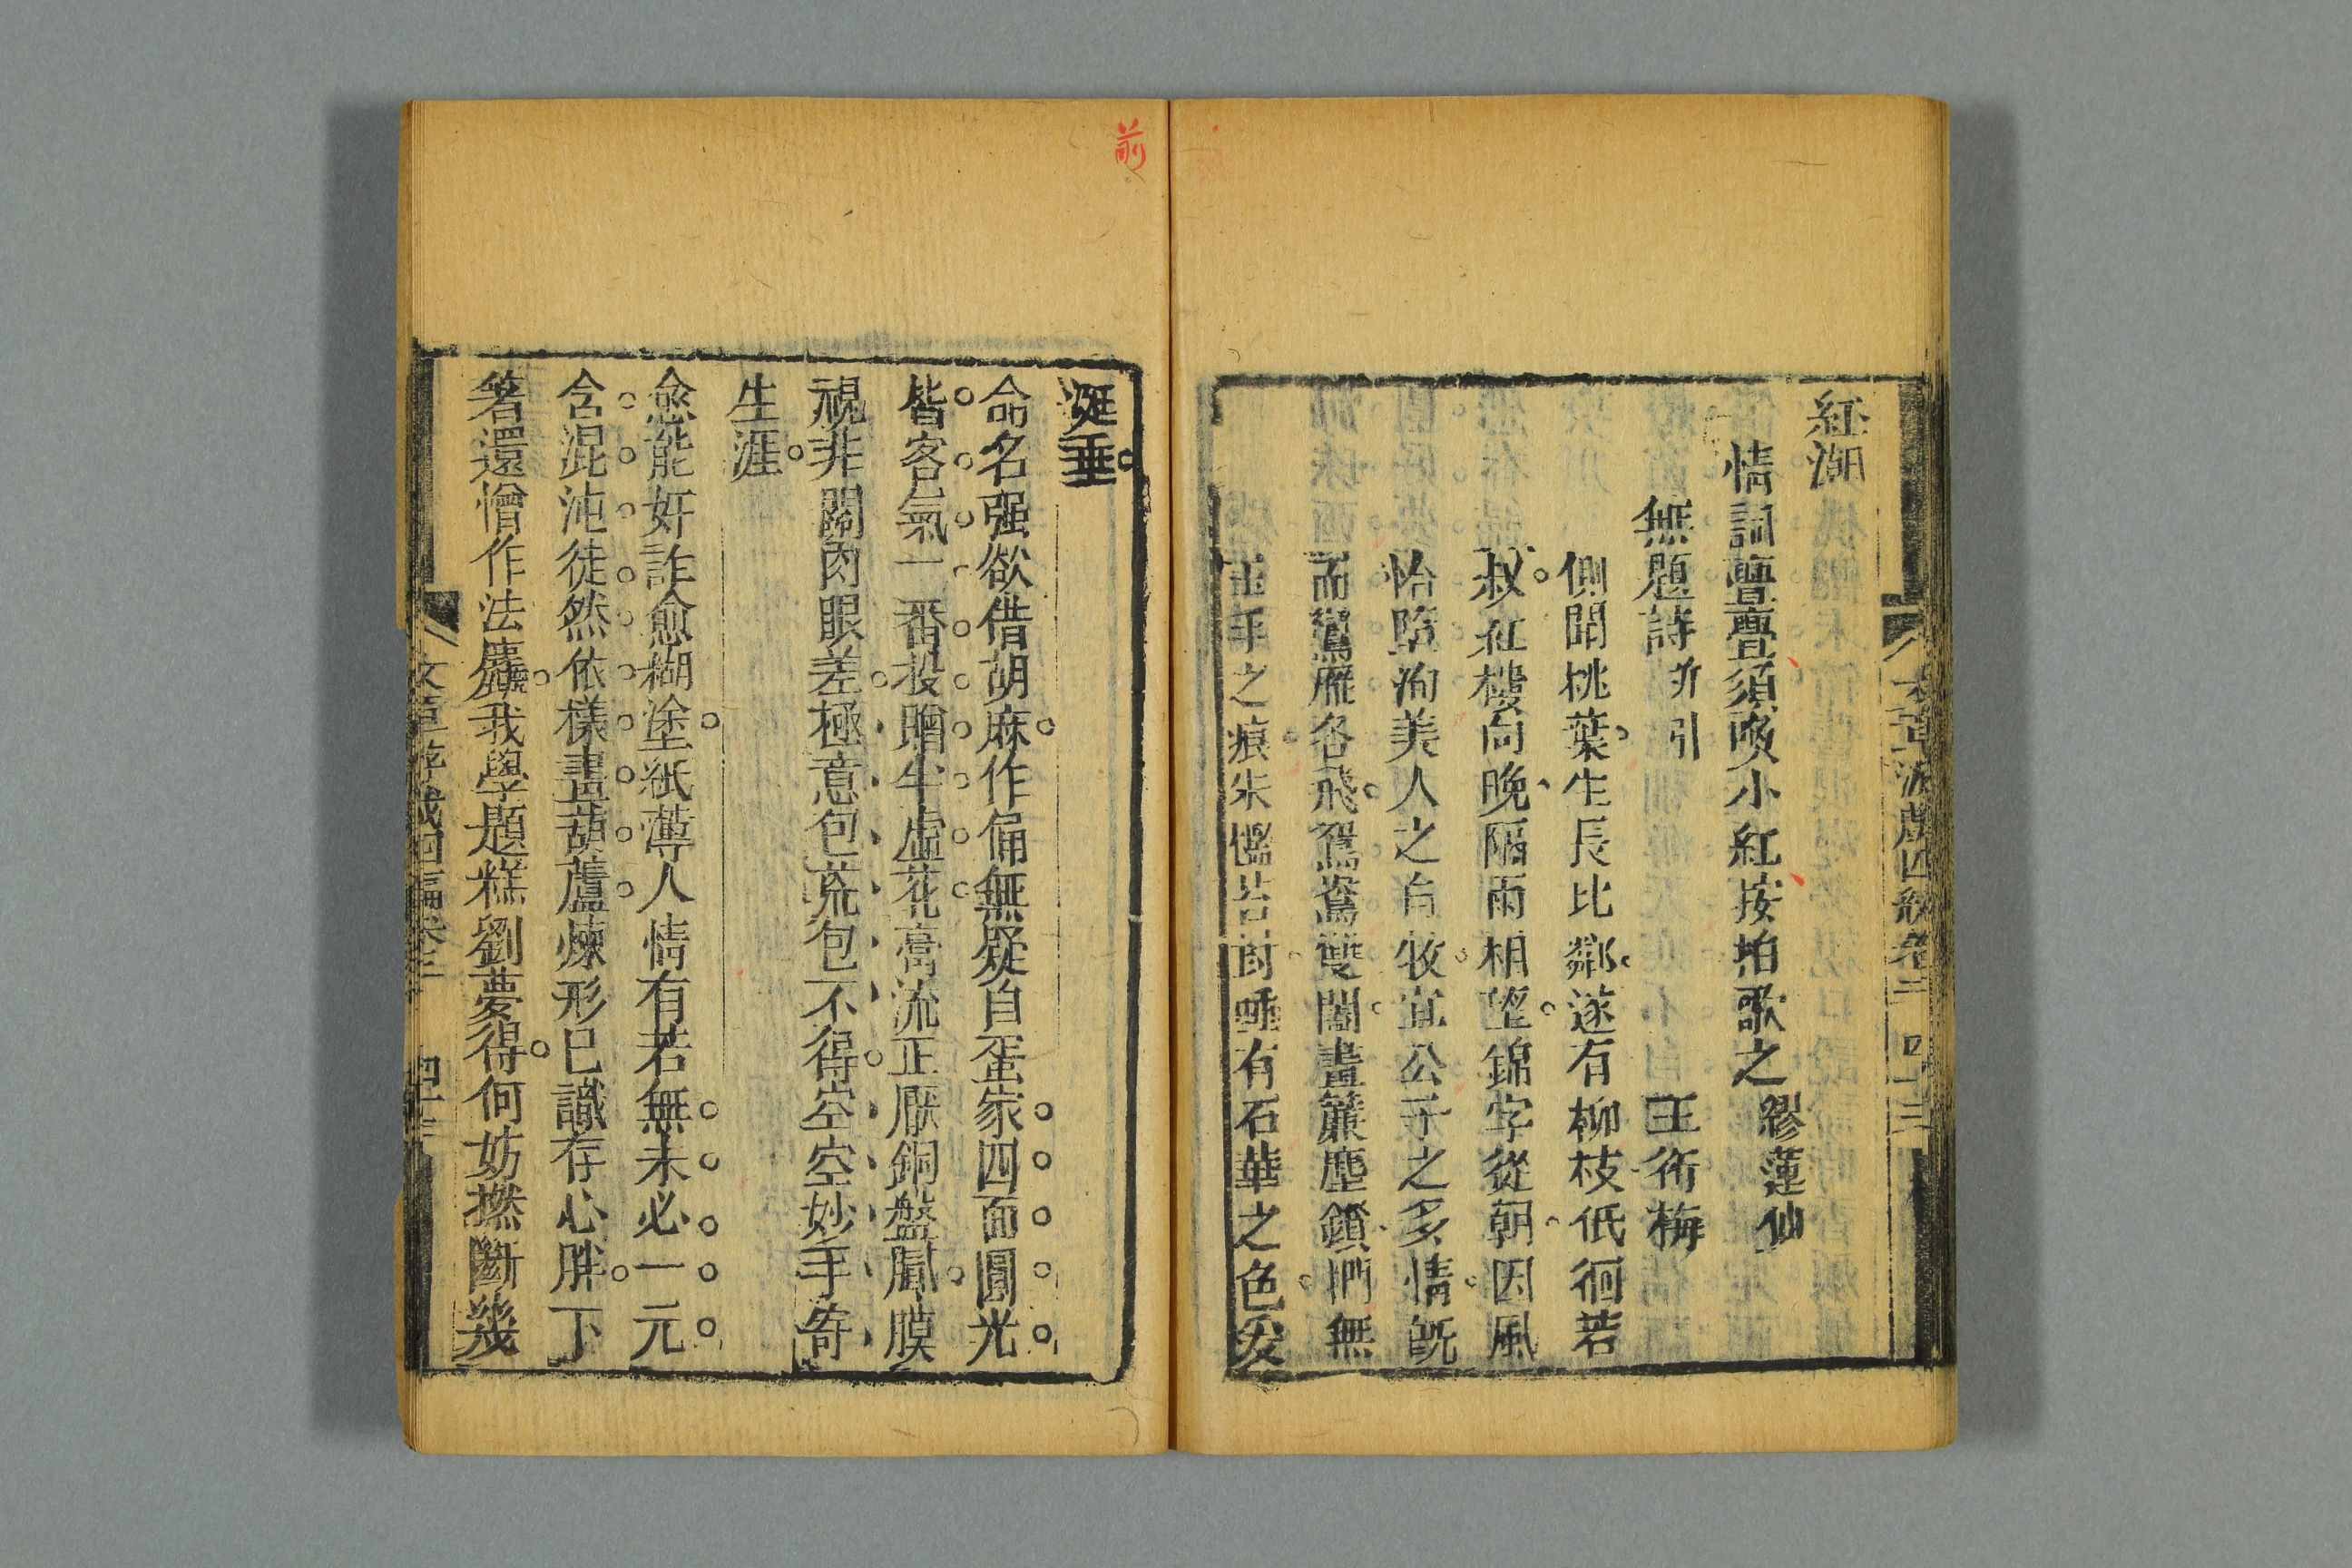 紅潮
情詞亹亹須喚小紅按拍歌之 繆蓮仙
無題詩 並引 王衍梅
側聞桃葉生長比鄰遂有柳枝低徊若
叔紅樓向晚隔雨相望錦字從朝因風
恰墮洵美人之自牧宜公子之多情旣
而鴛雁各飛鴛鴦雙闔畫簾塵鎖捫無
玉手之痕朱檻苔封唾有石華之色爰
前
涎垂
命名强欲借胡麻作俑無疑自蛋家四面圓光
皆客氣一番投贈半虛花膏流正厭銅盤膩膜
視非關肉眼差極意包荒包不得空空妙手寄
生涯
愈能奸詐愈糊塗紙薄人情有若無未必一元
含混沌徒然依樣畫葫蘆煉形已識存心胖下
箸還憎作法麤我學題糕劉夢得何妨撚斷幾
文章游戲四編卷三 四十三